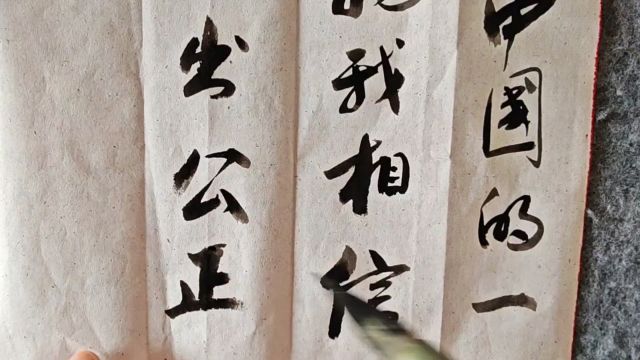 中国的一
我相信
出公正